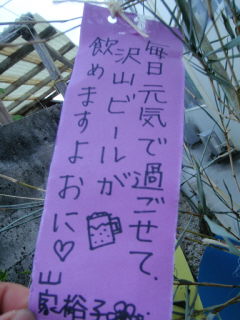 毎日元気で過ごせて、
沢山ビールが
飲めますよおに♡
山家裕子